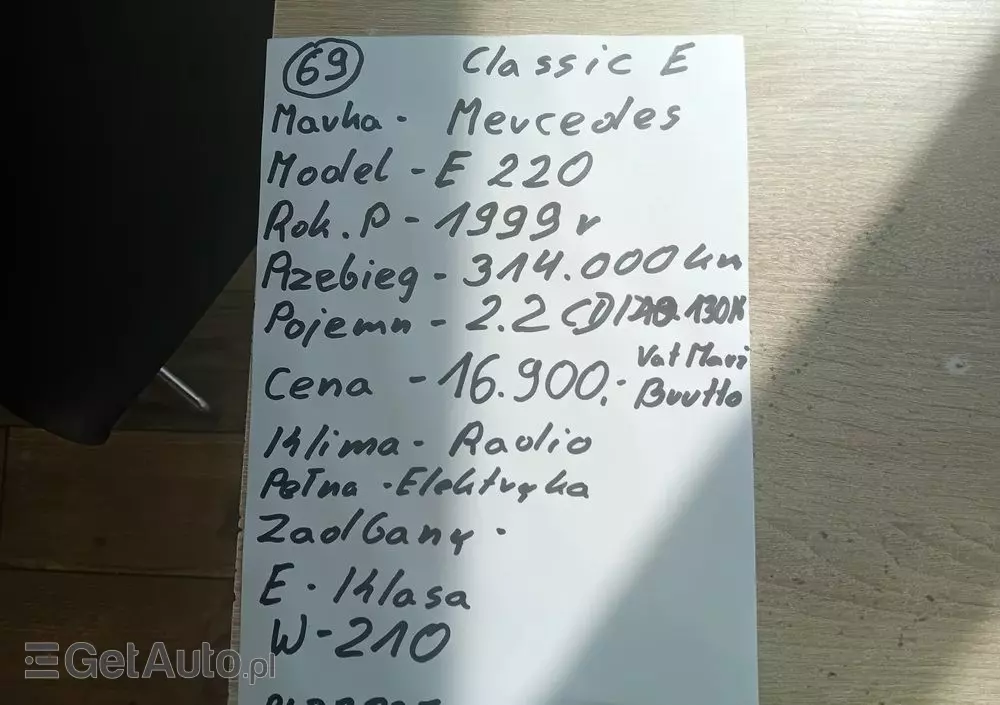 69 Classic E
Marka - Mercedes
Model - E 220
Rok. P - 1999 r
Przebieg - 314.000 km
Pojemn - 2.2 CDI 130K
Cena - 16.900,- Vat Marż
Brutto
Klima - Radio
Pełna - Elektryka
Zadbany.
E. Klasa
W-210
GetAuto.pl